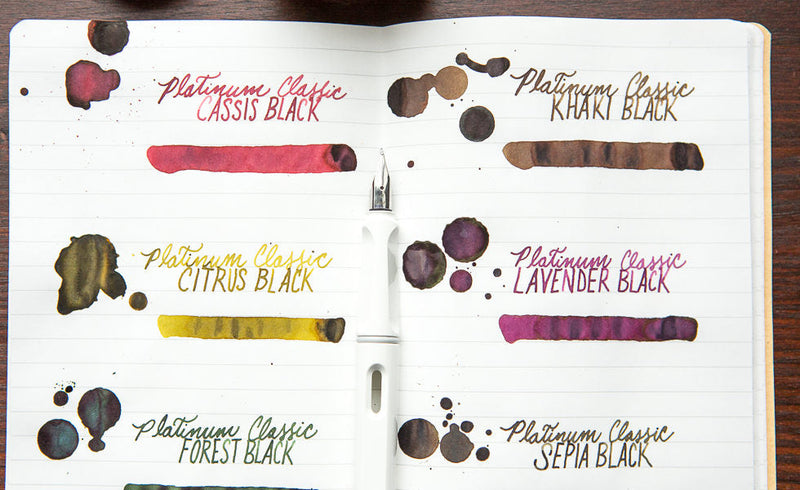 Platinum Classic
CASSIS BLACK
Platinum Classic
CITRUS BLACK
Platinum Classic
FOREST BLACK
Platinum Classic
KHAKI BLACK
Platinum Classic
LAVENDER BLACK
Platinum Classic
SEPIA BLACK